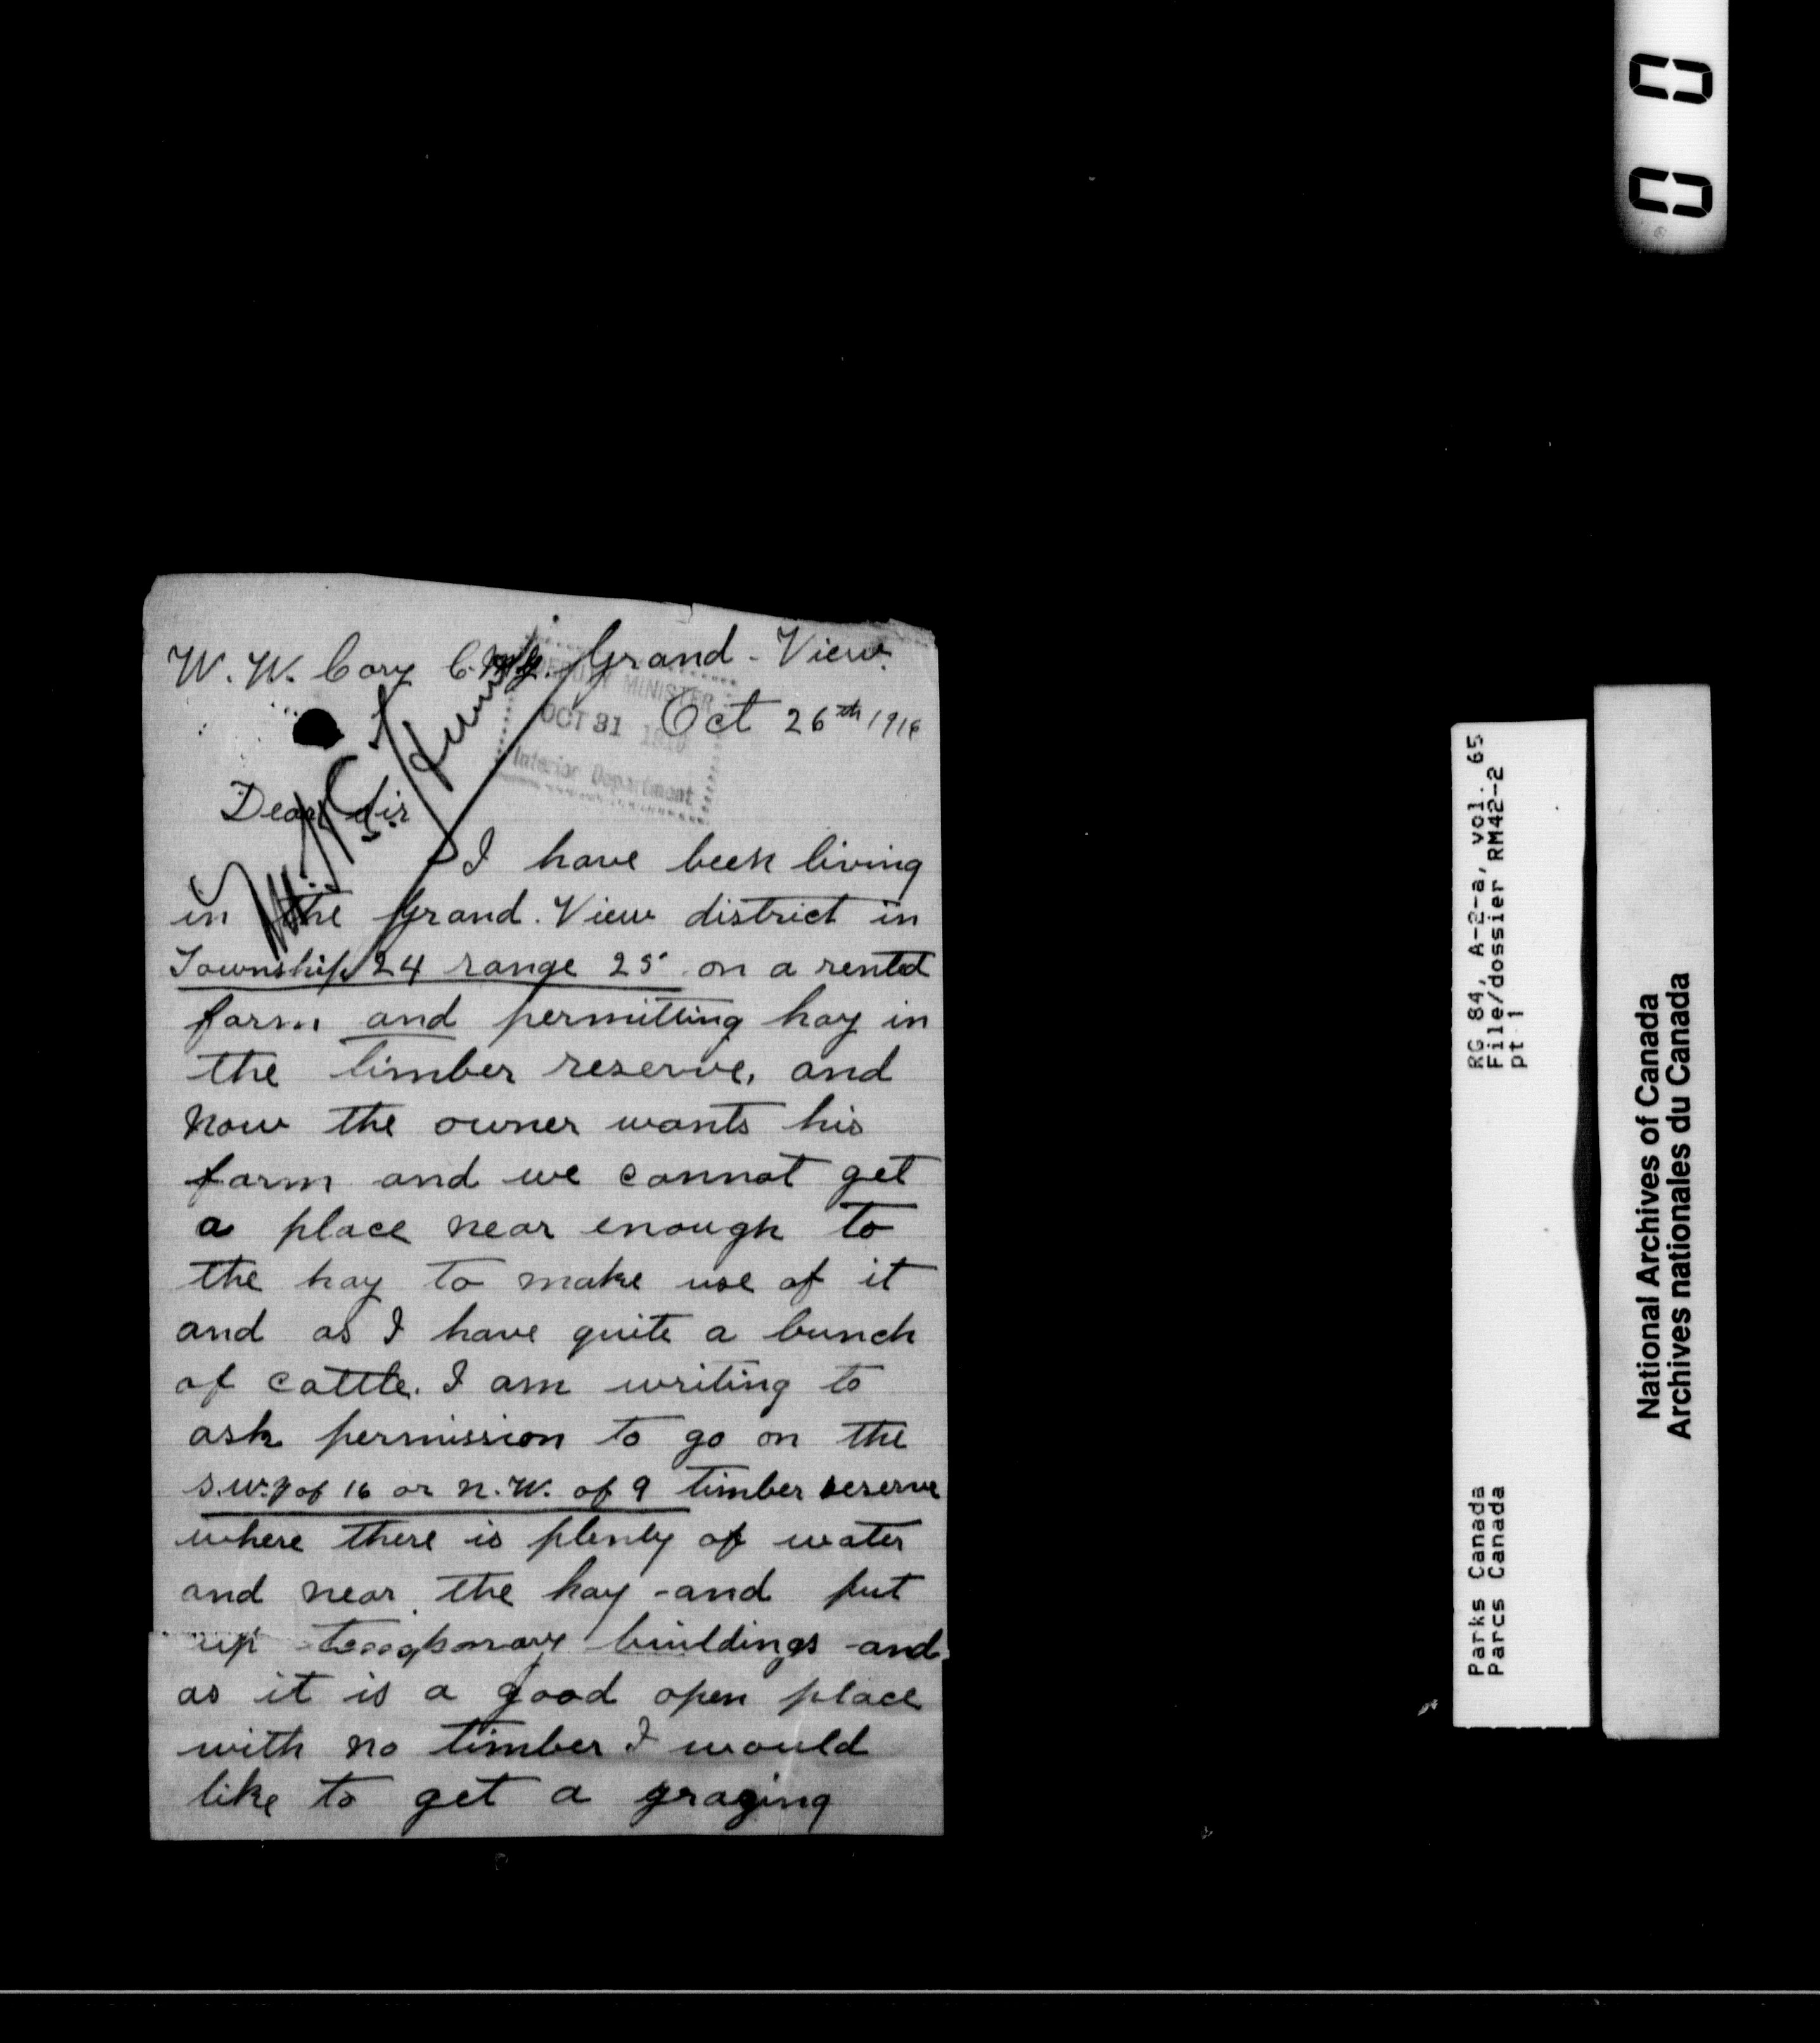 W. W. Cory C.M.G. Grand-View.
Oct 26th 191
DEPUTY MINISTER
OCT 31
Interior Department
Dear Sir
I have been living
in the Grand. View district in
Township 24 range 25 on a rented
farm and permitting hay in
the timber reserve, and
now the owner wants his
farm and we cannot get
a place near enough to
the hay to make use of it
and as I have quite a bunch
of cattle. I am writing to
ask permission to go on the
S.W. of 16 or N.W. of 9 timber reserve
where there is plenty of water
and near the hay - and put
up buildings - and
as it is a good open place
with no timber I would
like to get a grazing
RG 84, A-2-a, vol. 65
File/dossier RM42-2
pt 1
Parks Canada
Parcs Canada
National Archives of Canada
Archives nationales du Canada